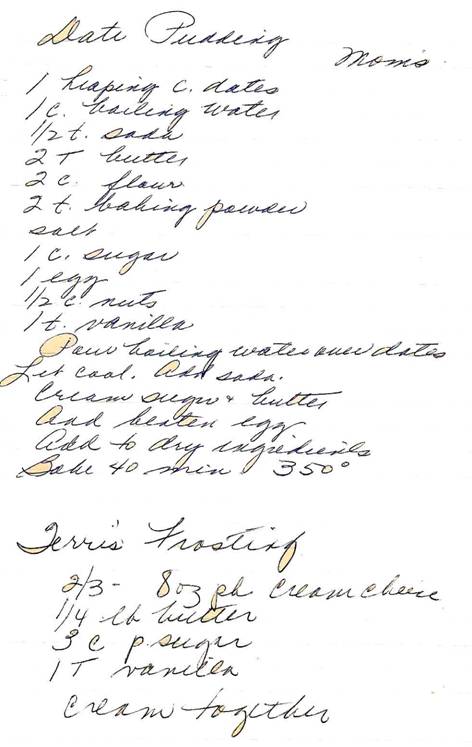 Date Pudding
Mom's
1 heaping c. dates
1 c. boiling water
1/2 t. soda
2 T butter
2 c. flour
2 t. baking powder
salt
1 c. sugar
1 egg
1/2 c. nuts
1 t. vanilla
Pour boiling water over dates
Let cool. Add soda.
Cream sugar + butter
And beaten egg
Add to dry ingredients
Bake 40 min 350°
Terri's Frosting
2/3 - 8 oz pk cream cheese
1/4 lb butter
3 c p. sugar
1 T vanilla
Cream together